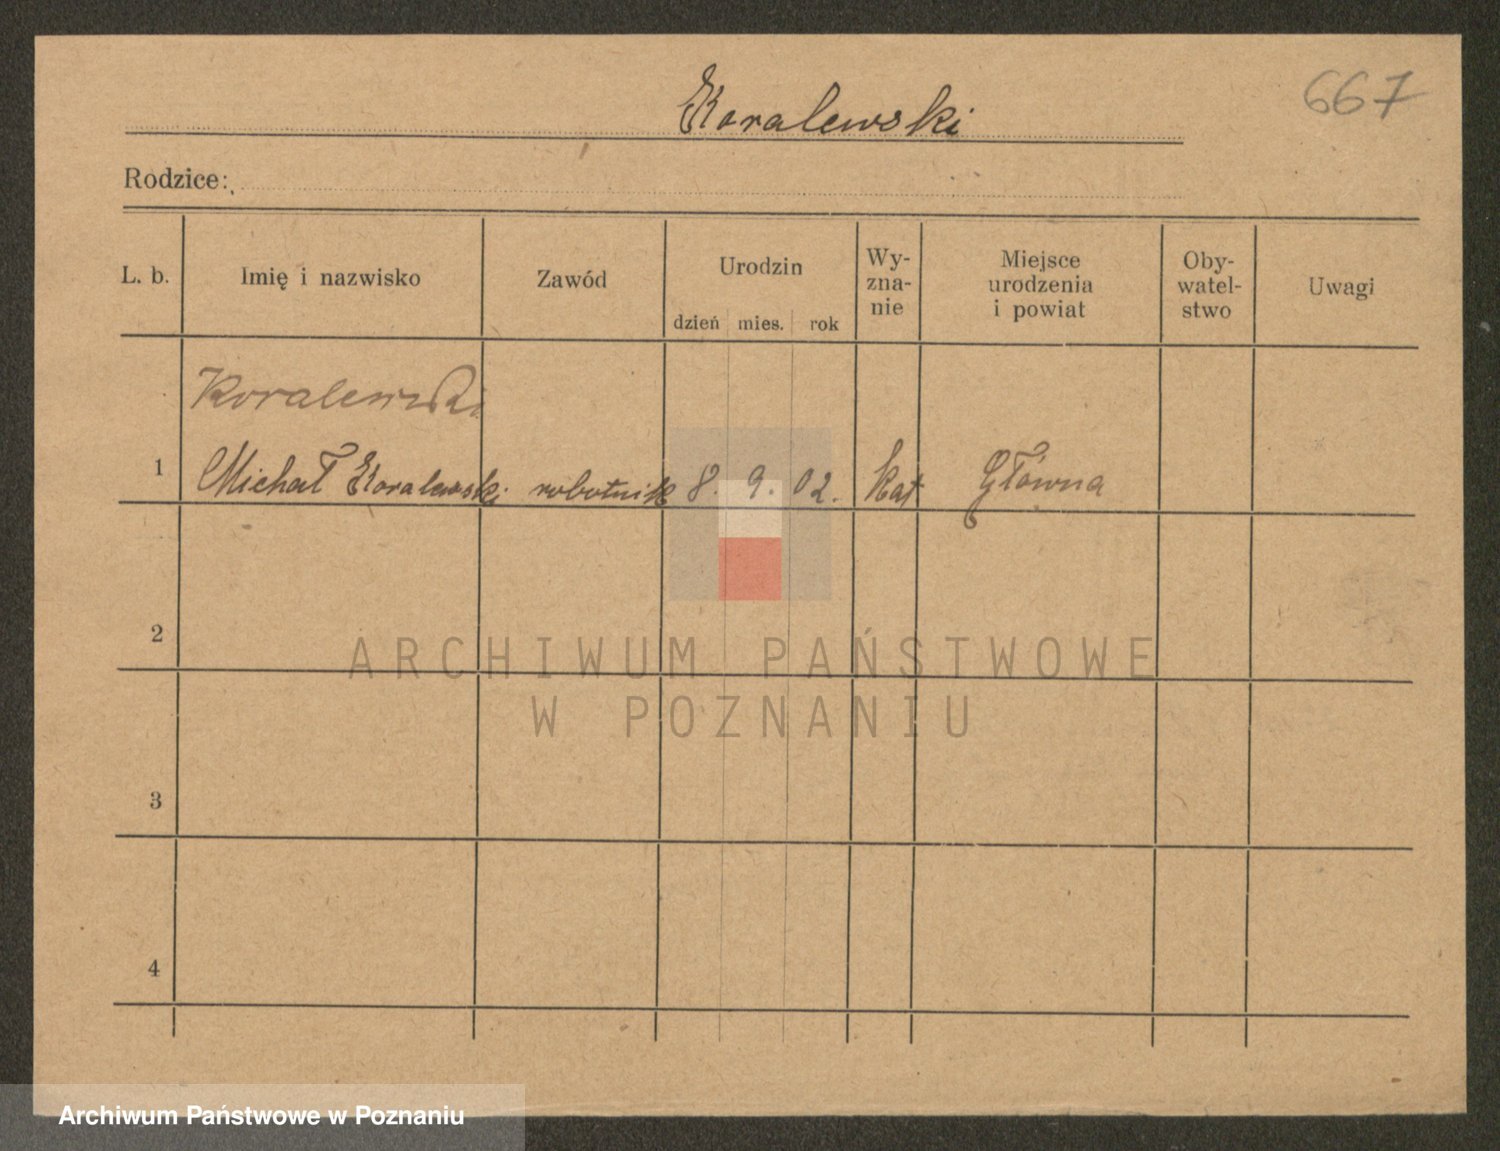 Koralewski
667
Rodzice:
L. b.
Imię i nazwisko
Zawód
Urodzin
dzień mies. rok
Wy-
zna-
nie
Miejsce
urodzenia
i powiat
Oby-
watel-
stwo
Uwagi
Koralewski
1 Michał Koralewski robotnik 8. 9. 02. kat Główna
2
3
4
ARCHIWUM PAŃSTWOWE
W POZNANIU
Archiwum Państwowe w Poznaniu